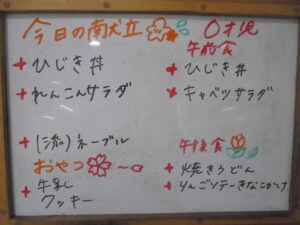 今日の献立
+ ひじき丼
+ れんこんサラダ
+ (添)ネーブル
おやつ
+ 牛乳
クッキー
0才児
午前食
+ ひじき丼
+ キャベツサラダ
午後食
+ 焼きうどん
+ りんごソテーきなこかけ